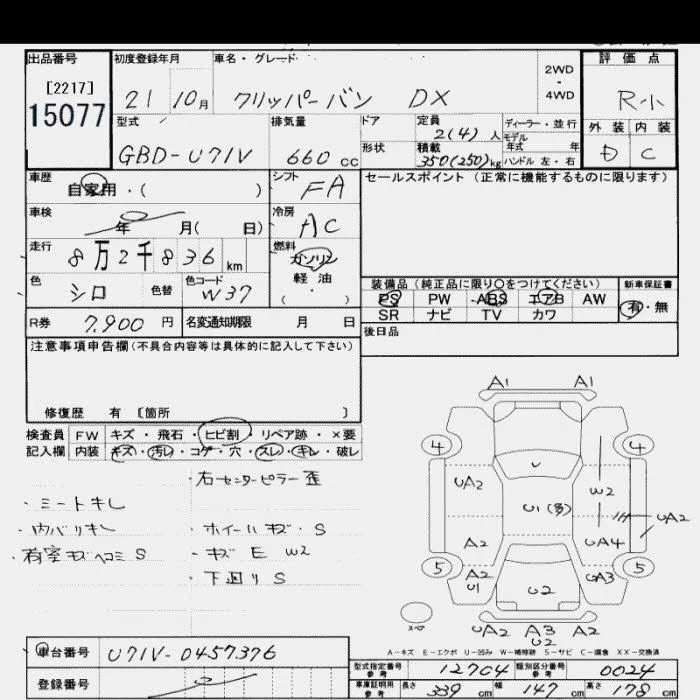 出品番号 初度登録年月 車名・グレード 2WD・4WD 評価点
[2217]
15077
21 10月 クリッパーバン DX R-小
型式 排気量 ドア 定員 ディーラー・並行 外装 内装
2(4)人 モデル年式 年
GBD-U71V 660 cc 形状 積載 350(250)kg ハンドル 左・右 D C
車歴 自家用・( ) シフト FA セールスポイント(正常に機能するものに限ります)
車検 年 月( 日) 冷房 AC
走行 8万2千836 km 燃料 ガソリン 軽油 ( ・ )
色 シロ 色替 色コード W37
装備品(純正品に限り○をつけてください) 新車保証書
PS PW ABS エアB AW 有・無
SR ナビ TV カワ
R券 7,900 円 名変通知期限 月 日 後日品
注意事項申告欄(不具合内容等は具体的に記入して下さい)
修復歴 有 [箇所 ]
検査員 FW キズ・飛石・ヒビ割・リペア跡・×要
記入欄 内装 キズ・汚レ・コゲ・穴・スレ・キレ・破レ
・右センターピラー歪
・シートキレ
・内バリキレ ・ホイールキズ・S
・荷室キズヘコミS ・キズ E W2
・下廻りS
A1 A1
4 4
UA2 W2
U1(多) UA2
A2 UA4
5 5
A2 U1 U2 UA3
スペア
UA2 A3 A2
U2
A-キズ E-エクボ U-凹み W-補修跡 S-サビ C-腐食 XX-交換済
車台番号 U71V-0457376
型式指定番号 参考 12704 類別区分番号 参考 0024
登録番号
車庫証明用 参考 長さ 339 cm 幅 147 cm 高さ 178 cm